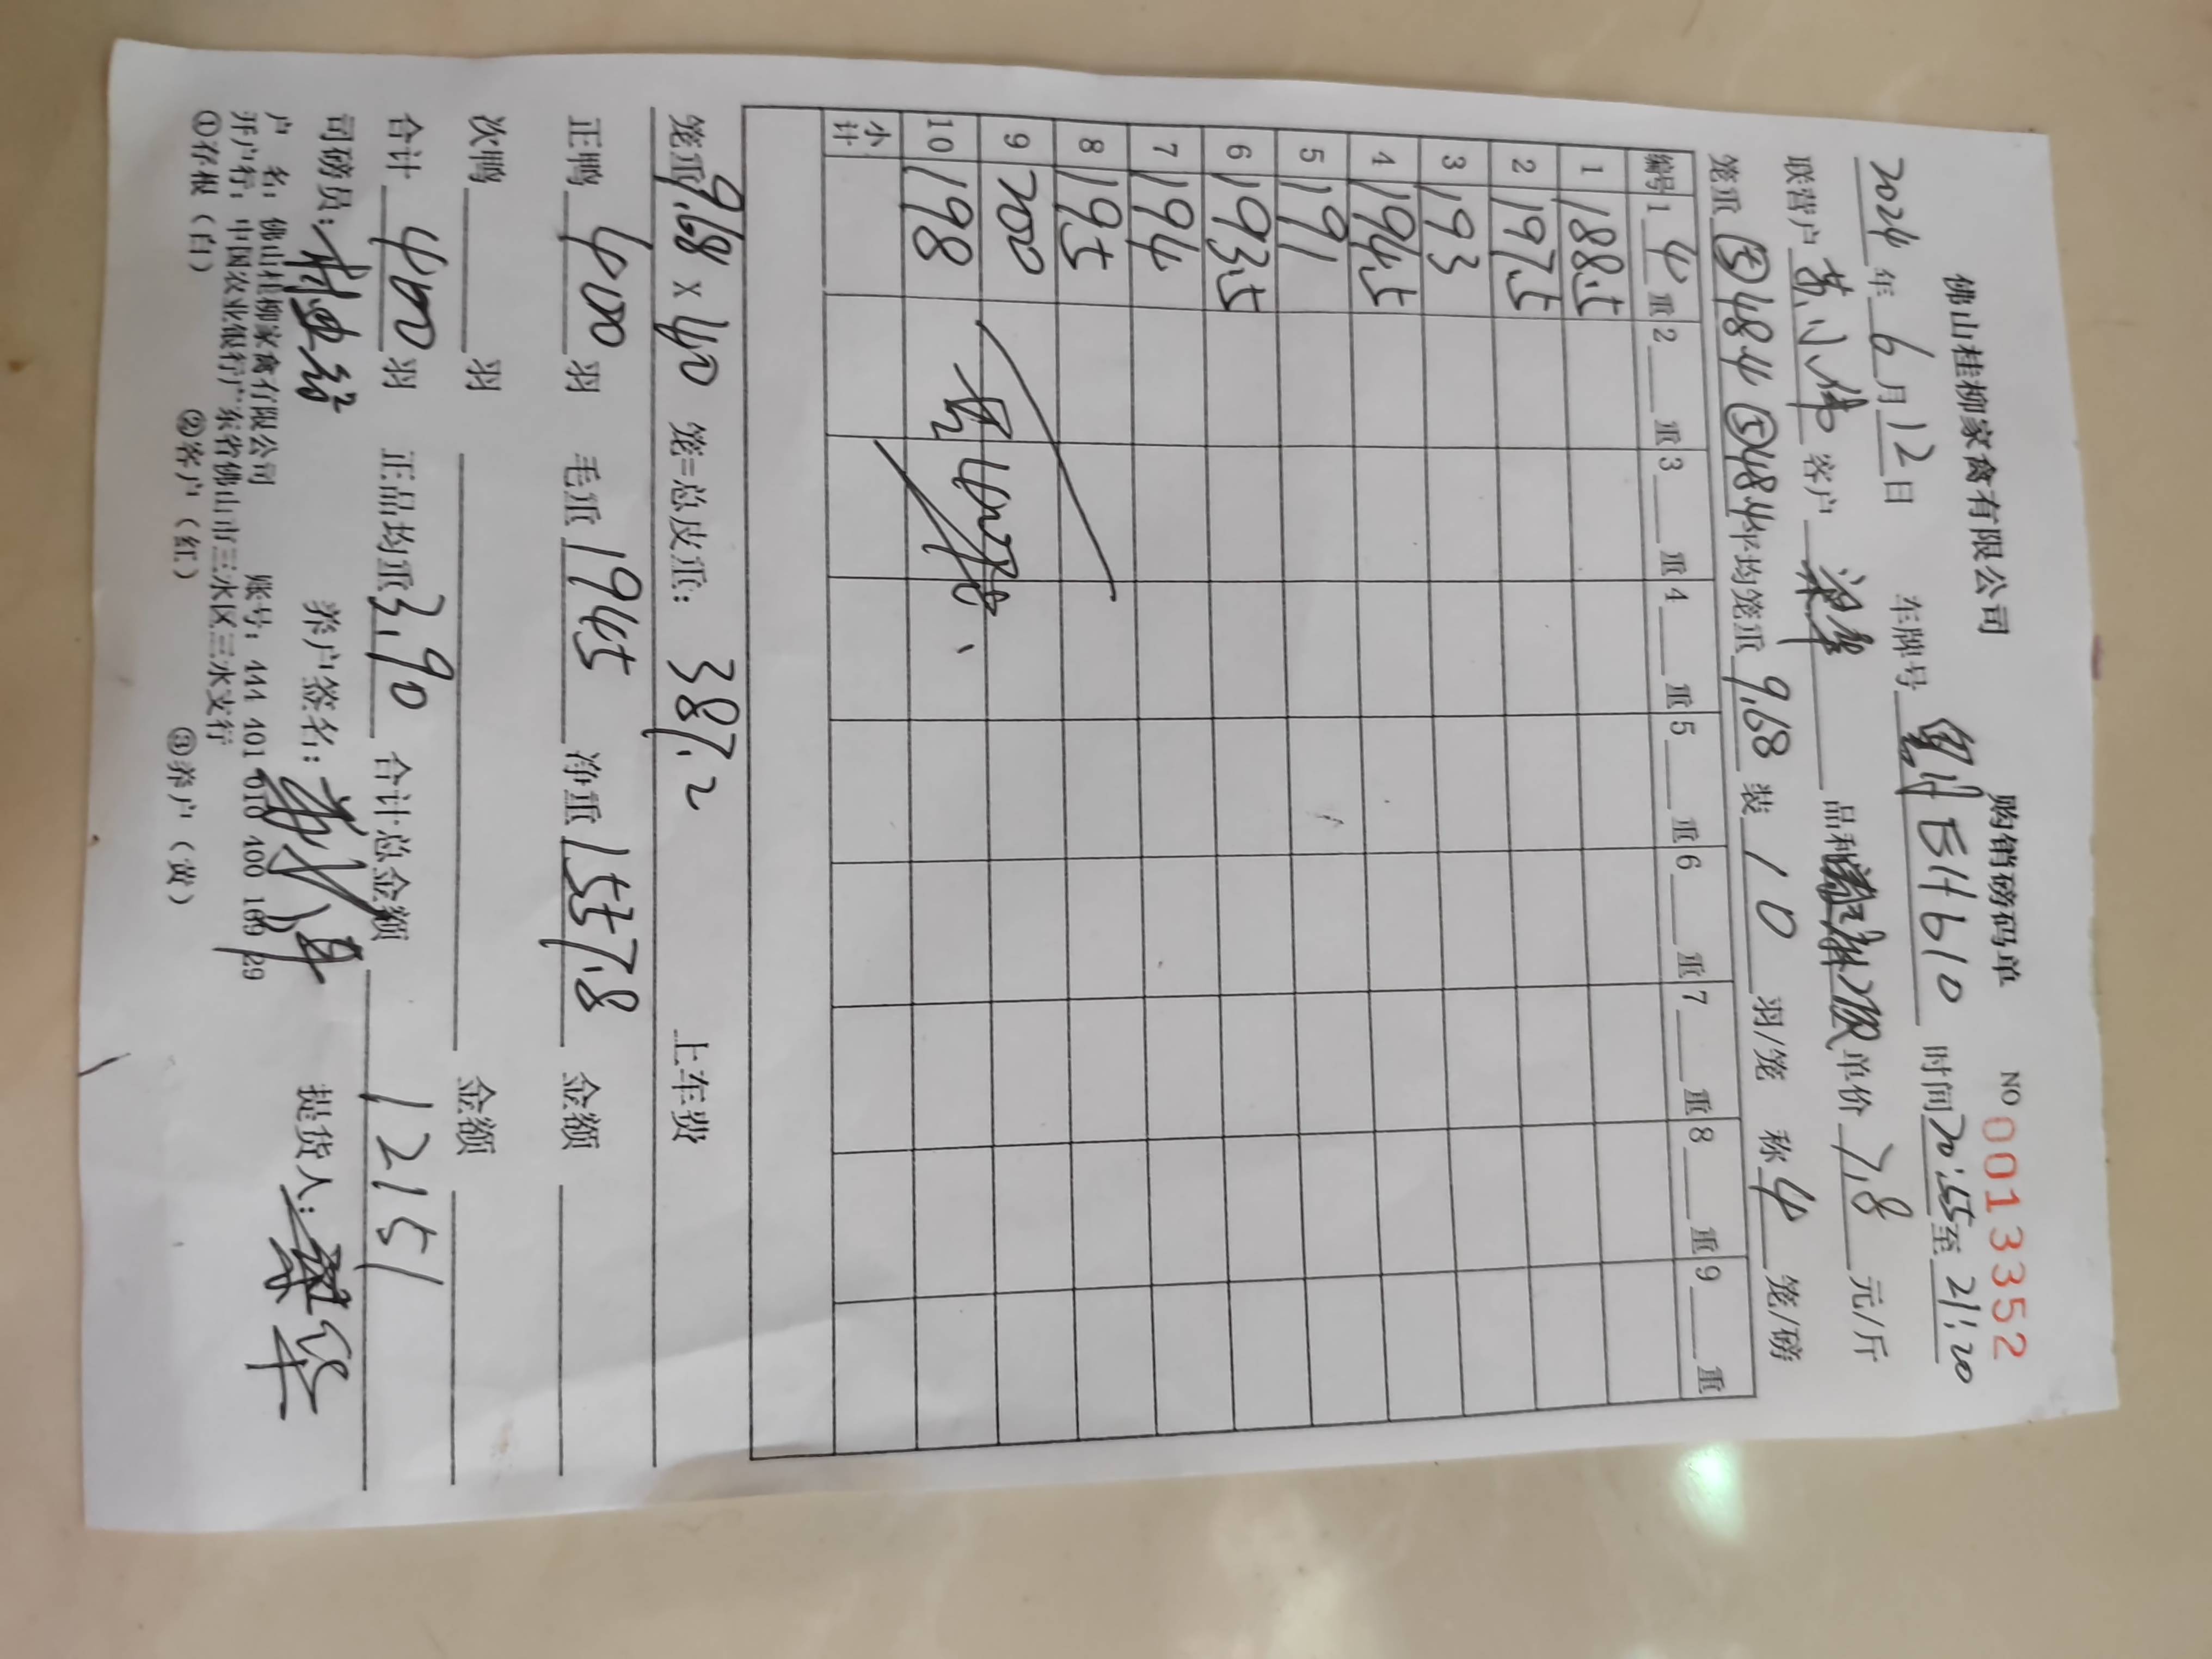 佛山桂柳家禽有限公司 购销磅码单 NO 0013352
2024年6月12日 车牌号 粤 EH610 时间 20:55至 21:20
联营户 黄小伟 客户 梁华 品种 单价 7.8 元/斤
笼重 ⑤48.4 ⑤48.4 平均笼重 9.68 装 10 羽/笼 称 4 笼/磅
编号 1 4 重 2 重 3 重 4 重 5 重 6 重 7 重 8 重 9 重
1 188.5
2 197.5
3 193
4 194.5
5 191
6 193.5
7 194
8 195
9 200
10 198
小计
笼重 9.68 x 40 笼=总皮重: 387.2 上车费
正鸭 400 羽 毛重 1945 净重 1557.8 金额
次鸭 羽 金额
合计 400 羽 正品均重 3.90 合计总金额 12151
司磅员: 养户签名: 提货人: 梁华
户 名: 佛山桂柳家禽有限公司 账号: 444 401 010 400 169 29
开户行: 中国农业银行广东省佛山市三水区三水支行
①存根(白) ②客户(红) ③养户(黄)